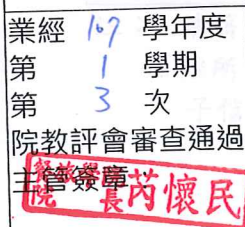 業經 107 學年度
第 1 學期
第 3 次
院教評會審查通過
主管簽章：
院長芮懷民